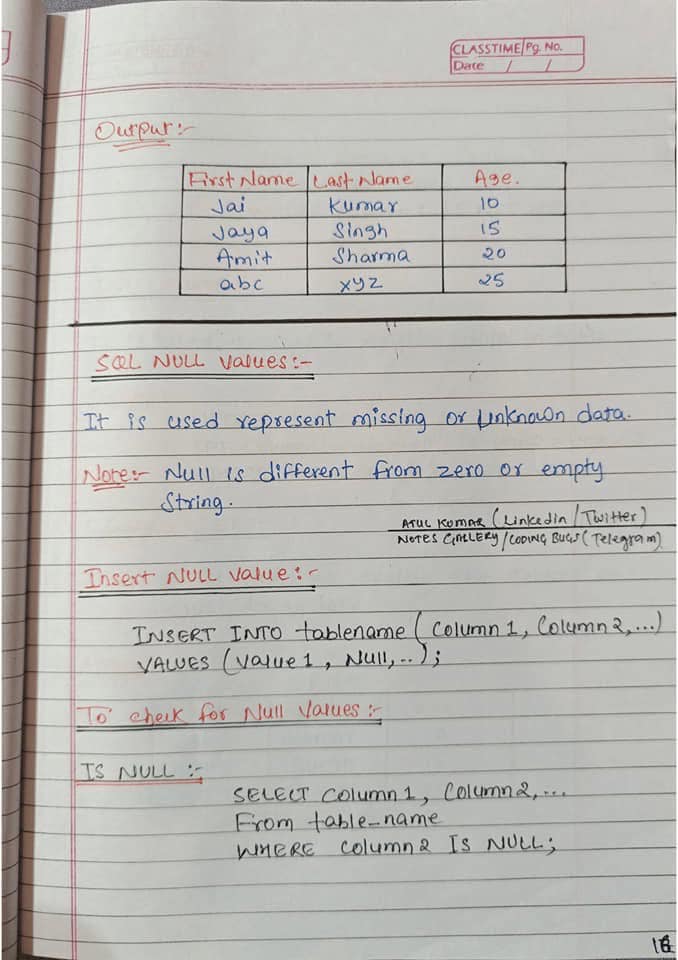 CLASSTIME Pg. No.
Date / /
Output:-
First Name Last Name Age.
Jai Kumar 10
Jaya Singh 15
Amit Sharma 20
abc xyz 25
SQL NULL Values:-
It is used represent missing or Unknown data.
Note:- Null is different from zero or empty
String.
ATUL KUMAR (Linkedin/Twitter)
NOTES GALLERY/CODING BUGS (Telegram)
Insert NULL value:-
INSERT INTO tablename (Column1, Column2,...)
VALUES (value1, Null,..);
To check for Null values:-
IS NULL:-
SELECT Column1, Column2,...
From table_name
WHERE column2 IS NULL;